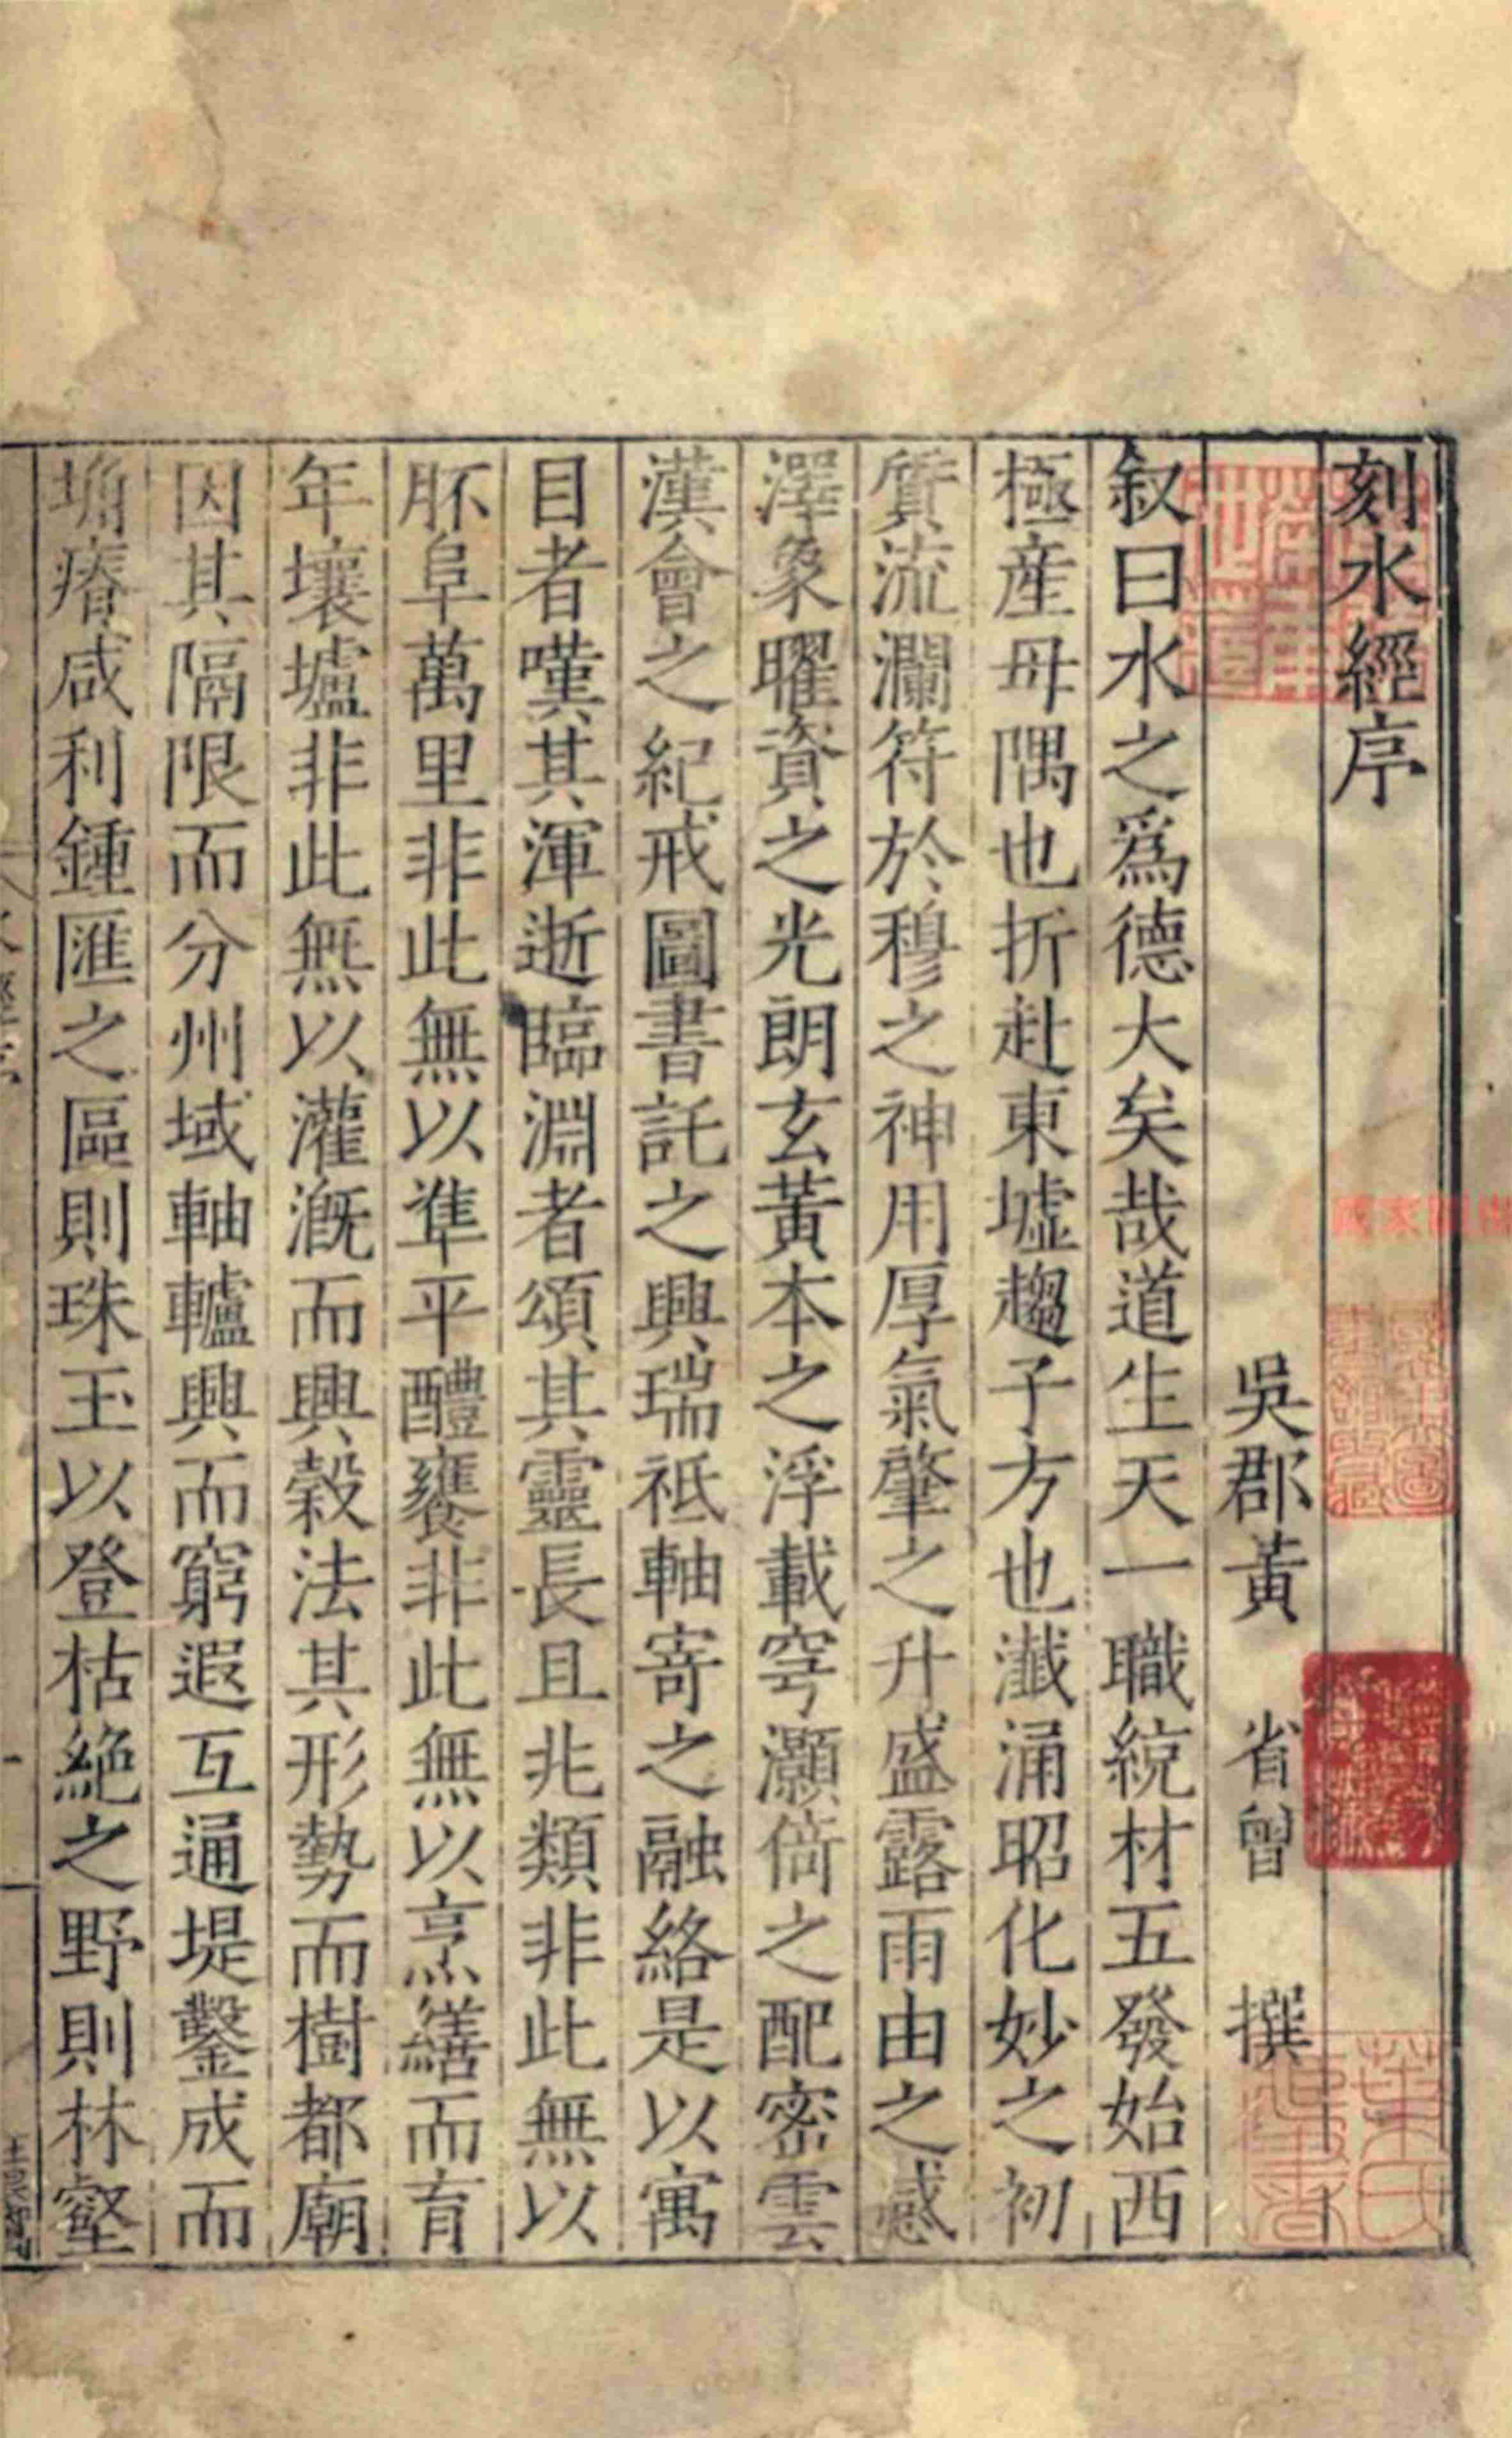 刻水經序
吳郡黃省曾撰
叙曰水之爲德大矣哉道生天一職統材五發始西
極産毋隅也折赴東墟趨子方也瀸涌昭化妙之初
質流瀾符於穆之神用厚氣肇之升盛露雨由之感
澤象曜資之光朗玄黃本之浮載穹灝倚之配密雲
漢會之紀戒圖書託之興瑞祇軸寄之融絡是以寓
目者嘆其渾逝臨淵者頌其靈長且兆類非此無以
胚阜萬里非此無以準平醴饔非此無以烹饍而育
年壤壚非此無以灌漑而興穀法其形勢而樹都廟
因其隔限而分州域軸轤興而窮遐互通堤鑿成而
塉瘠咸利鍾匯之區則珠玉以登枯絶之野則林壑